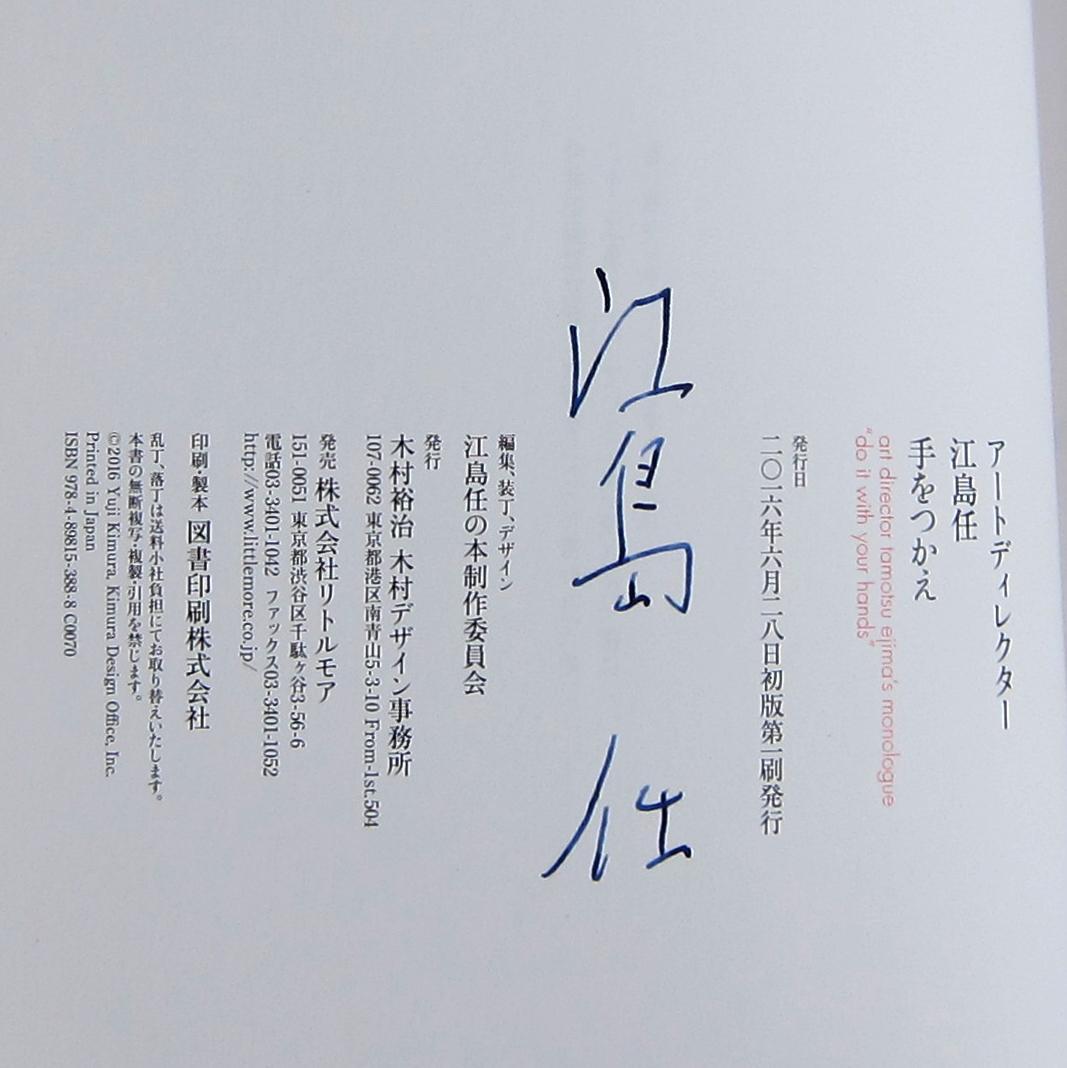 アートディレクター
江島任
手をつかえ
art director tamotsu ejima's monologue
“do it with your hands”
発行日
二〇一六年六月二八日初版第一刷発行
江島 任
編集、装丁、デザイン
江島任の本制作委員会
発行
木村裕治 木村デザイン事務所
107-0062 東京都港区南青山5-3-10 From-1st.504
発売 株式会社リトルモア
151-0051 東京都渋谷区千駄ヶ谷3-56-6
電話03-3401-1042 ファックス03-3401-1052
http://www.littlemore.co.jp/
印刷・製本 図書印刷株式会社
乱丁、落丁は送料小社負担にてお取り替えいたします。
本書の無断複写・複製・引用を禁じます。
©2016 Yuji Kimura, Kimura Design Office, Inc.
Printed in Japan
ISBN 978-4-89815-388-8 C0070